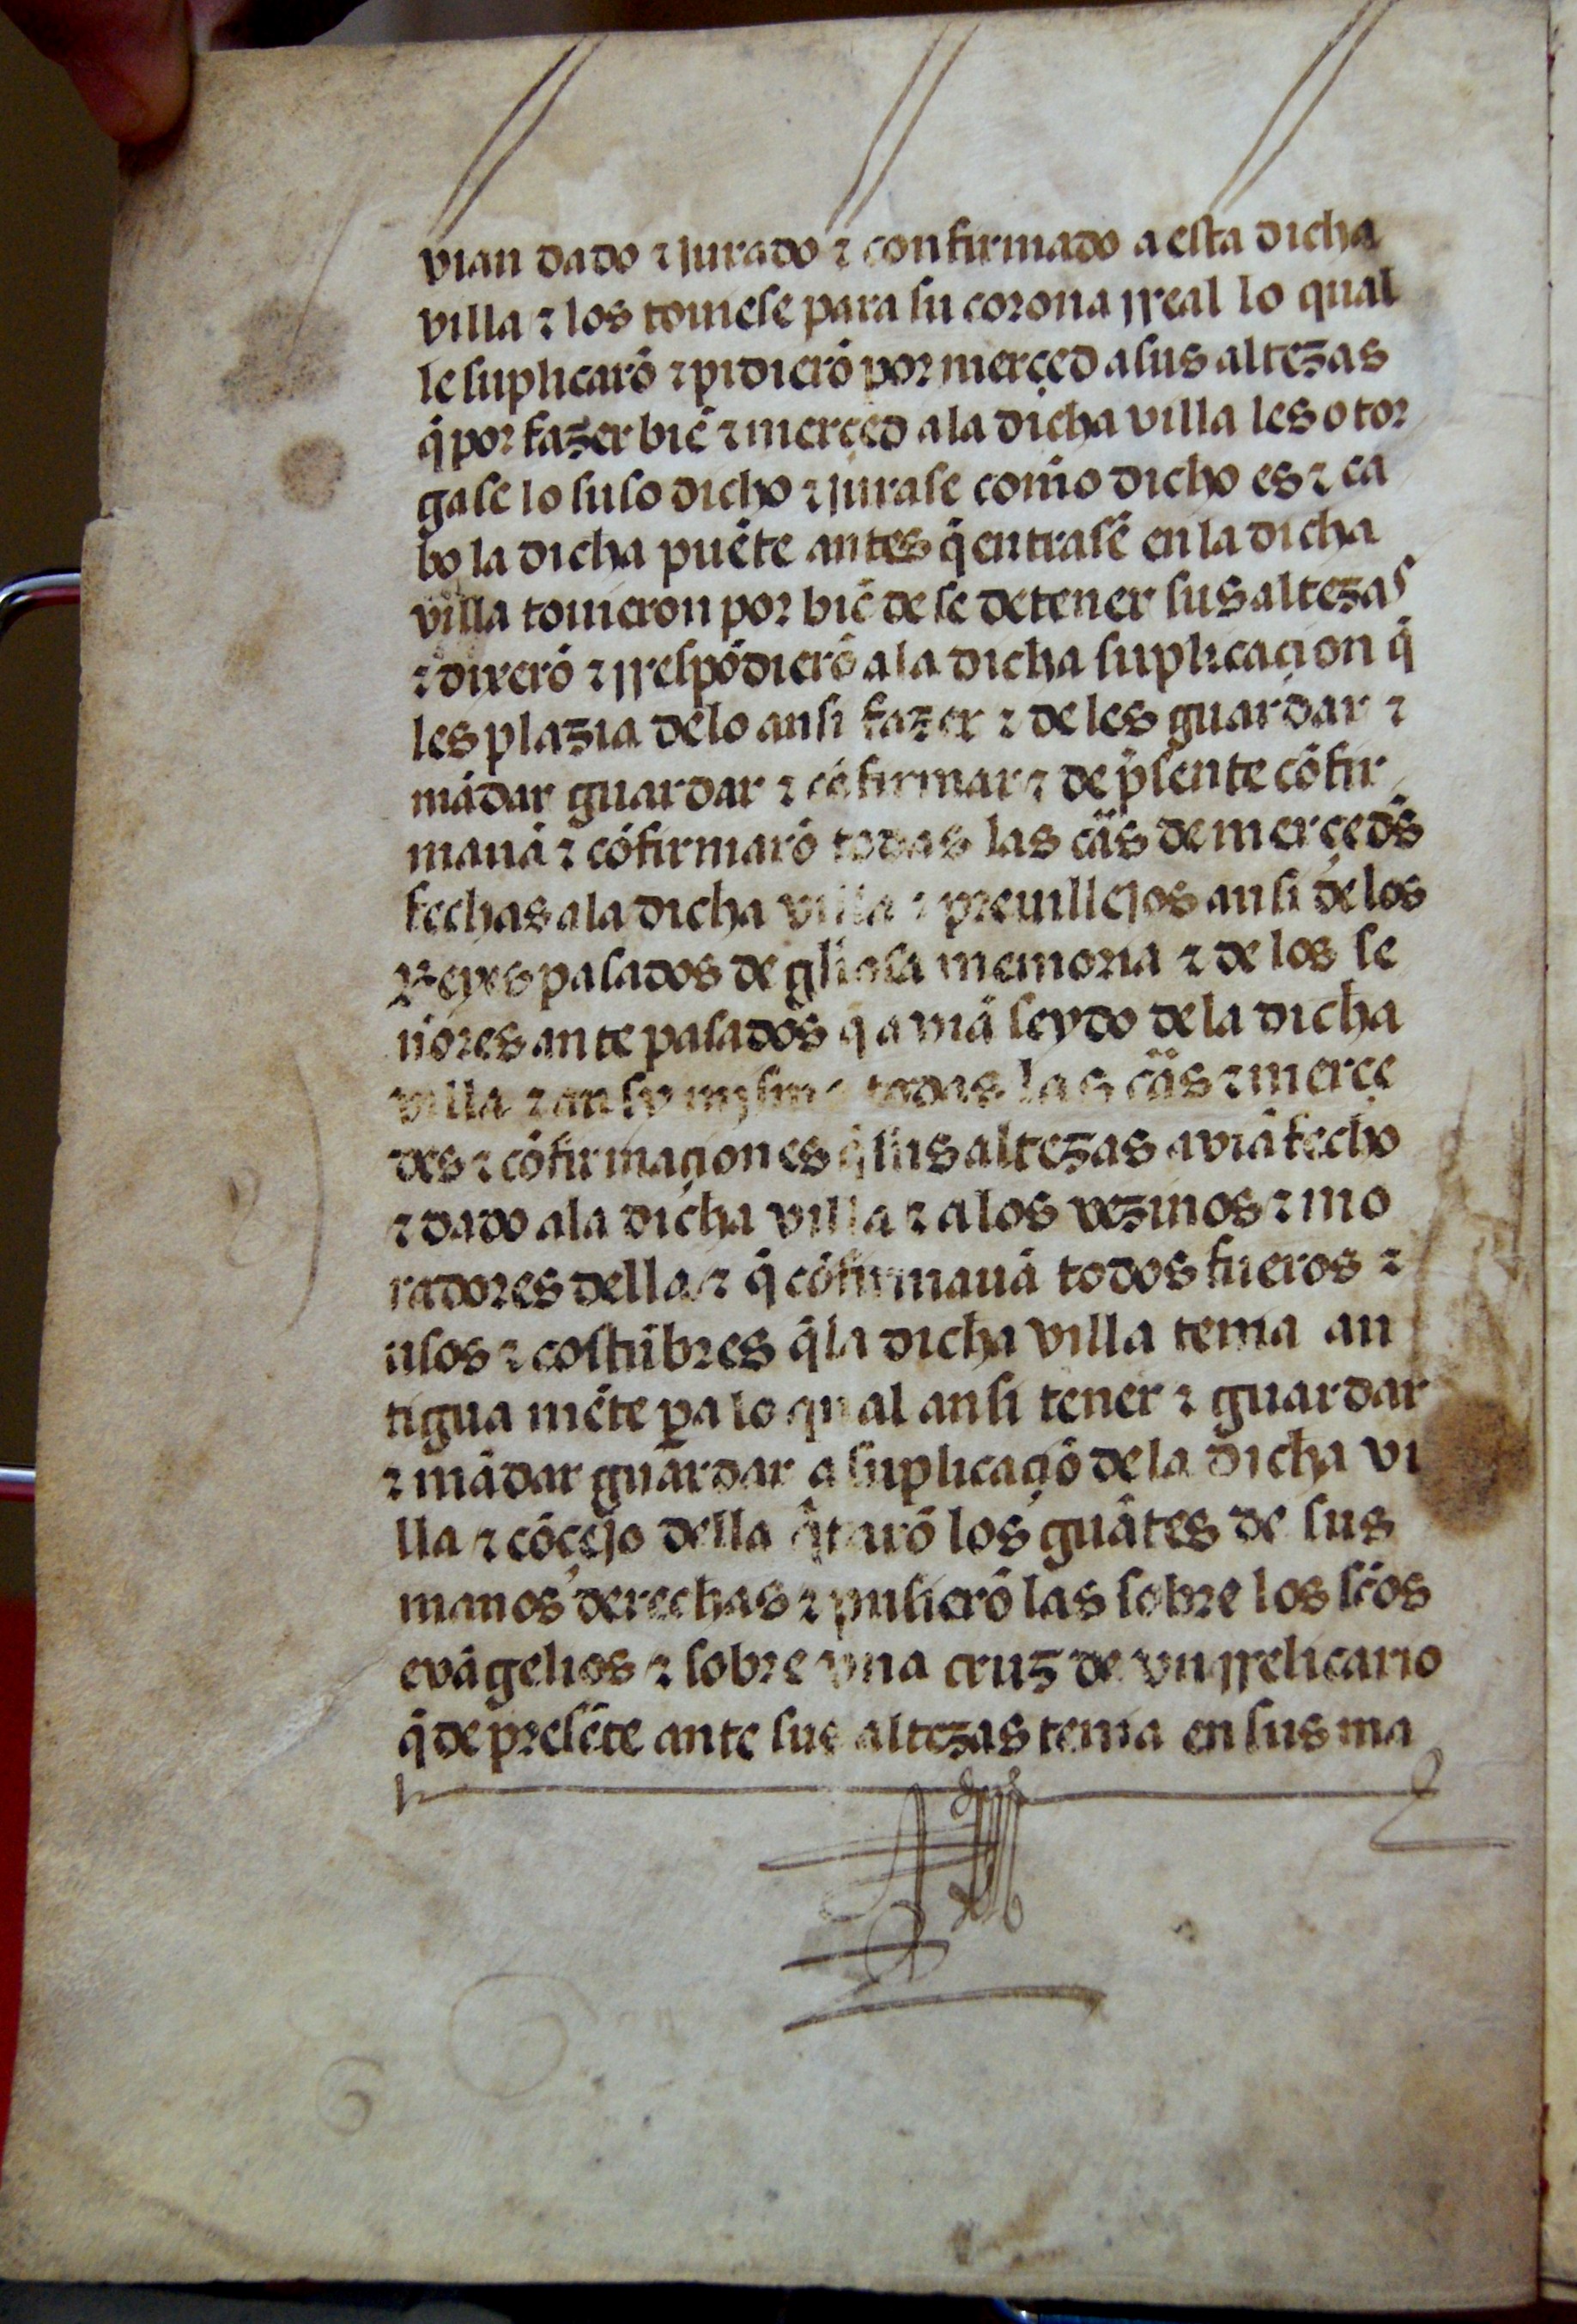 vian dado ⁊ jurado ⁊ confirmado a esta dicha
villa ⁊ los tomese para su corona rreal lo qual
le suplicarō ⁊ pidierō por merçed a sus altezas
q̄ por fazer biē ⁊ merçed a la dicha villa les otor
gase lo suso dicho ⁊ jurase com̄o dicho es ⁊ ca
bo la dicha puēte antes q̄ entrasē en la dicha
villa touieron por biē de se detener sus altezas
⁊ dixerō ⁊ rrespōdierō a la dicha suplicaçion q̄
les plazia de lo ansi fazer ⁊ de les guardar ⁊
mādar guardar ⁊ cōfirmar ⁊ de p̄sente cōfir
mauā ⁊ cōfirmarō todas las cās de merçeds̄
fechas a la dicha villa ⁊ preuillejos ansi de los
Reyes pasados de gl̄iosa memoria ⁊ de los se
ñores antepasados q̄ aviā seydo de la dicha
villa ⁊ an sy mysmo todas las cās ⁊ merçe
des ⁊ cōfirmaçiones q̄ sus altezas aviā fecho
⁊ dado a la dicha villa ⁊ a los vezinos ⁊ mo
radores della ⁊ q̄ cōfirmauā todos fueros ⁊
usos ⁊ costūbres q̄ la dicha villa tenia an
tigua mēte ꝑa lo qual ansi tener ⁊ guardar
⁊ mādar guardar a suplicaçiō de la dicha vi
lla ⁊ cōçejo della q̄tarō los guātes de sus
manos derechas ⁊ pusierō las sobre los sc̄os
evāgelios ⁊ sobre vna cruz de vn rrelicario
q̄ de presēte ante sus altezas tenia en sus ma